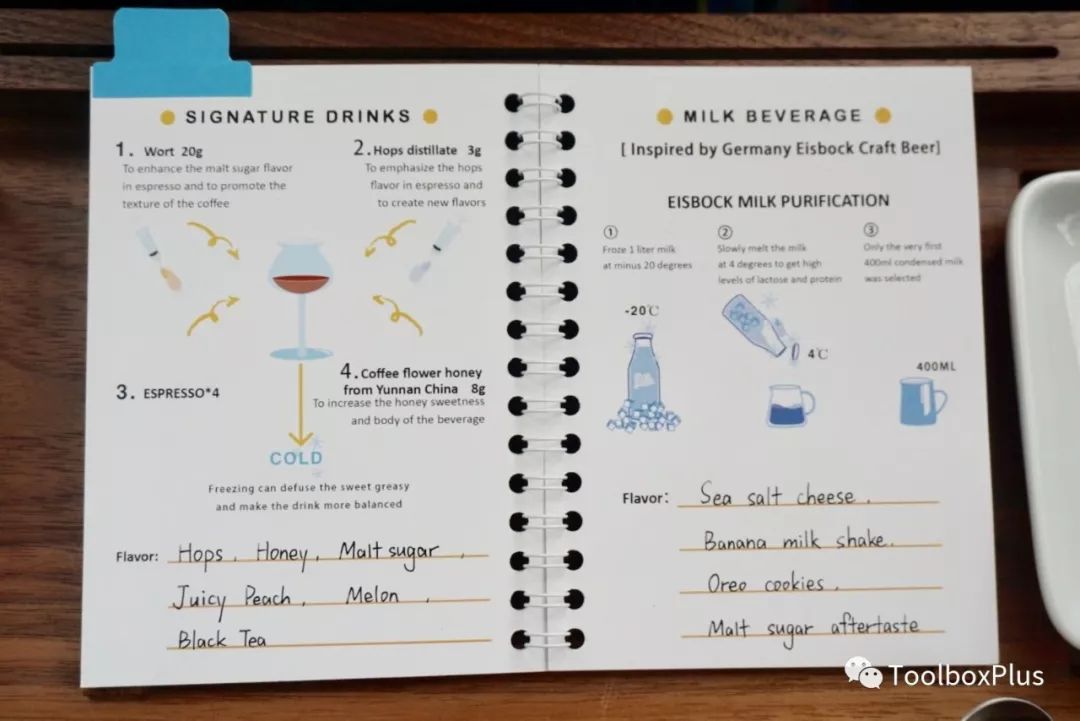 SIGNATURE DRINKS
1. Wort 20g
To enhance the malt sugar flavor
in espresso and to promote the
texture of the coffee
2. Hops distillate 3g
To emphasize the hops
flavor in espresso and
to create new flavors
3. ESPRESSO*4
4. Coffee flower honey
from Yunnan China 8g
To increase the honey sweetness
and body of the beverage
COLD
Freezing can defuse the sweet greasy
and make the drink more balanced
Flavor: Hops, Honey, Malt sugar,
Juicy Peach, Melon,
Black Tea
MILK BEVERAGE
[ Inspired by Germany Eisbock Craft Beer]
EISBOCK MILK PURIFICATION
①
Froze 1 liter milk
at minus 20 degrees
②
Slowly melt the milk
at 4 degrees to get high
levels of lactose and protein
③
Only the very first
400ml condensed milk
was selected
-20℃
4℃
400ML
Flavor: Sea salt cheese,
Banana milk shake.
Oreo cookies,
Malt sugar aftertaste
ToolboxPlus